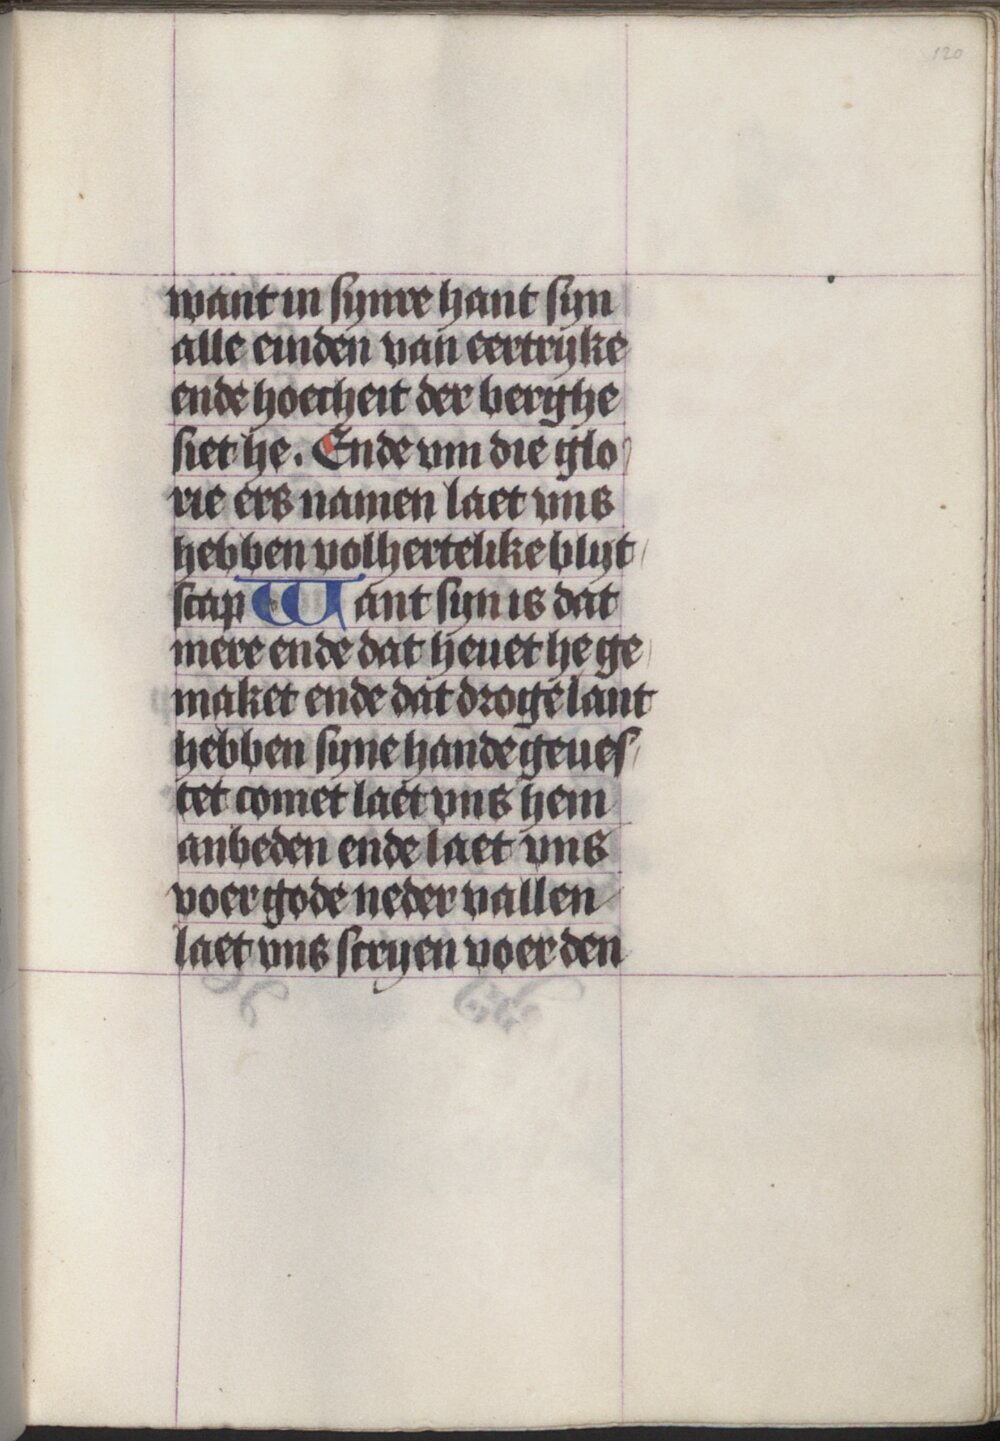 120
want in synre hant syn
alle einden van eertryke
ende hoecheit der berghe
siet he. Ende vm die glo
rie ers namen laet vns
hebben volhertelike blijt
scap Want syn is dat
mere ende dat heuet he ge
maket ende dat droge lant
hebben syne hande geues
tet comet laet vns hem
anbeden ende laet vns
voer gode neder vallen
laet vns scryen voer den